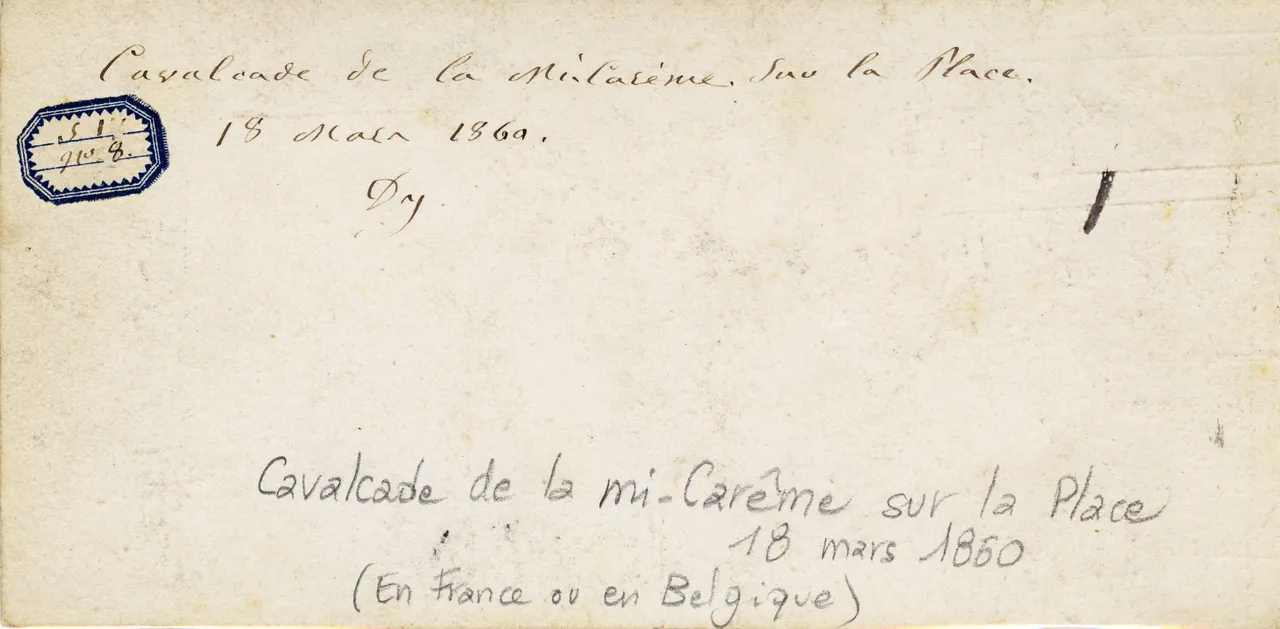 Cavalcade de la Mi-Carême. Sur la Place.
18 Mars 1860.
S 1
No 8.
Dy
Cavalcade de la mi-Carême sur la Place
18 mars 1860
(En France ou en Belgique)